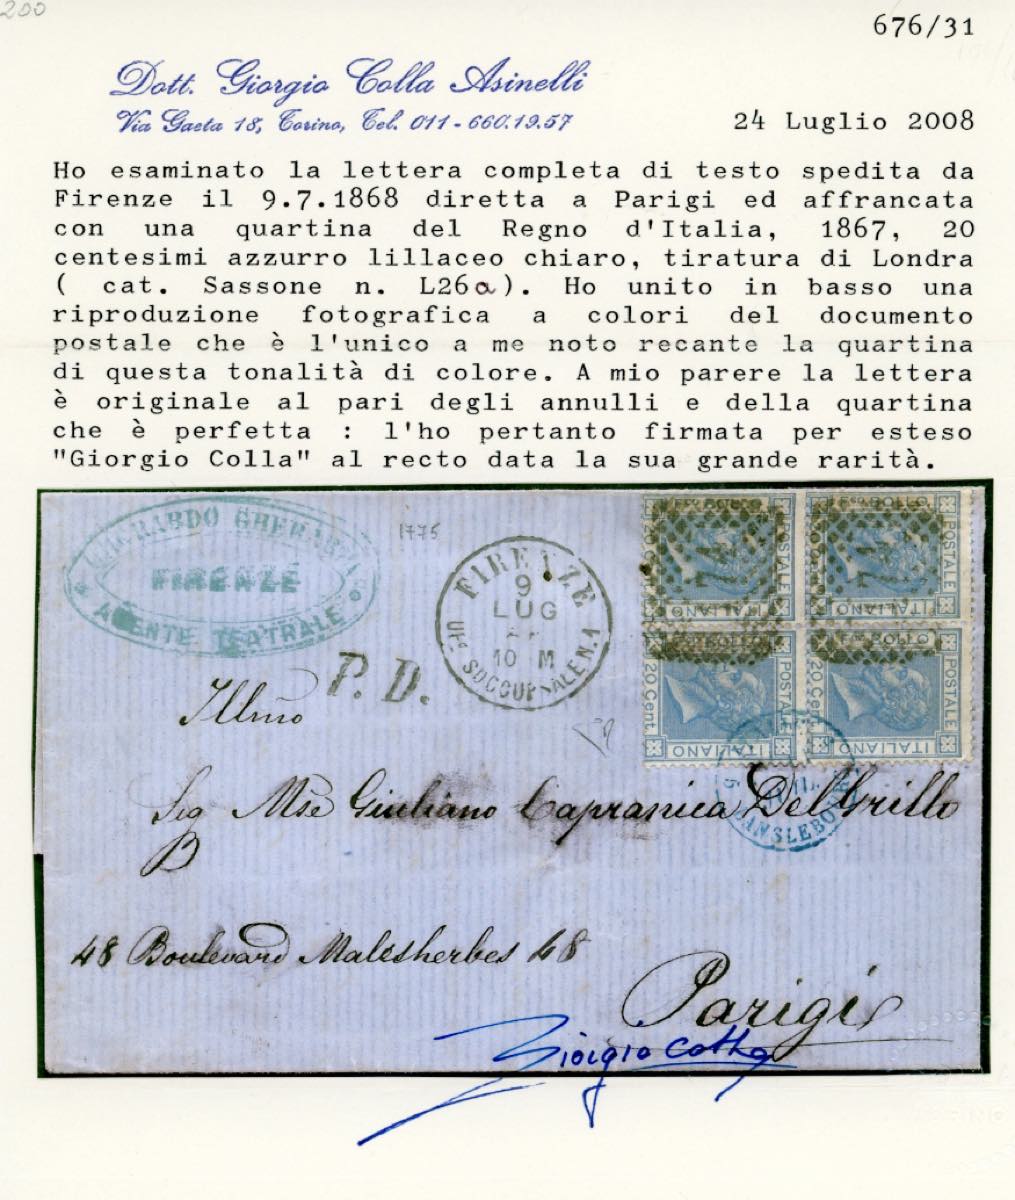 200
676/31
Dott. Giorgio Colla Asinelli
Via Gaeta 18, Torino, Tel. 011-660.19.57
24 Luglio 2008
Ho esaminato la lettera completa di testo spedita da
Firenze il 9.7.1868 diretta a Parigi ed affrancata
con una quartina del Regno d'Italia, 1867, 20
centesimi azzurro lillaceo chiaro, tiratura di Londra
( cat. Sassone n. L26a). Ho unito in basso una
riproduzione fotografica a colori del documento
postale che è l'unico a me noto recante la quartina
di questa tonalità di colore. A mio parere la lettera
è originale al pari degli annulli e della quartina
che è perfetta : l'ho pertanto firmata per esteso
"Giorgio Colla" al recto data la sua grande rarità.
GHERARDI
FIRENZE
AGENTE TEATRALE
1775
FIRENZE
9
LUG
10 M
SUCCURSALE N.1
P.D.
BOLLO
POSTALE
ITALIANO
BOLLO
POSTALE
ITALIANO
20 Cent
BOLLO
POSTALE
ITALIANO
20 Cent
BOLLO
POSTALE
ITALIANO
20 Cent
Illmo
Sig Mse Giuliano Capranica Del Grillo
B
48 Boulevard Malesherbes 48
Parigi
Giorgio Colla